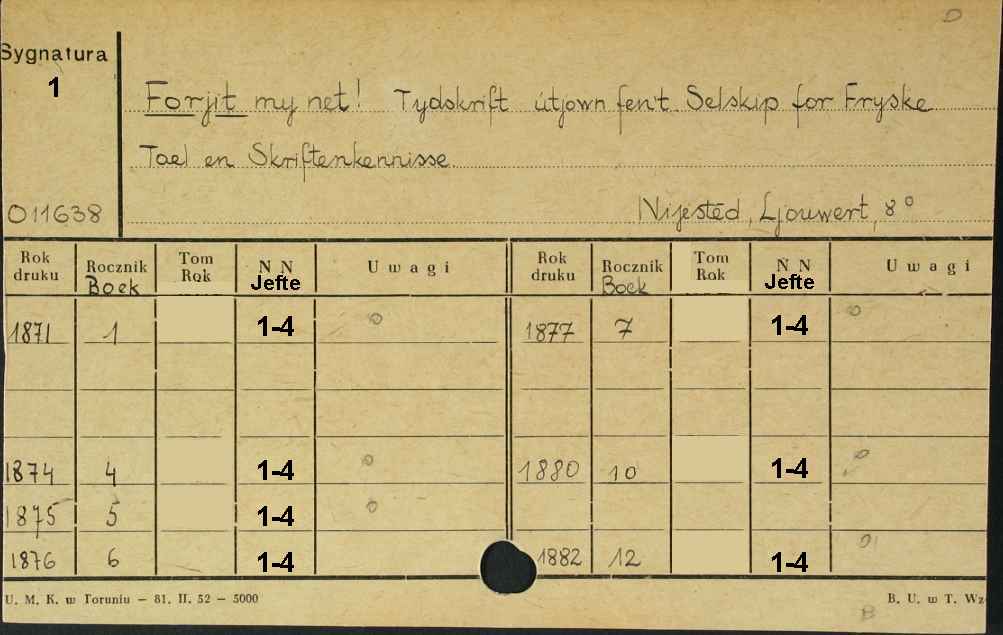 D
Sygnatura
1
Forjit my net! Tydskrift útjown fen't Selskip for Fryske
Tael en Skriftenkennisse
011638
Nijested, Ljouwert, 8°
Rok druku Rocznik Boek Tom Rok N N Jefte Uwagi Rok druku Rocznik Boek Tom Rok N N Jefte Uwagi
1871 1 1-4 o 1877 7 1-4 o
1874 4 1-4 o 1880 10 1-4 o
1875 5 1-4 o
1876 6 1-4 1882 12 1-4
U. M. K. w Toruniu – 81. II. 52 – 5000
B. U. w T. Wz
B